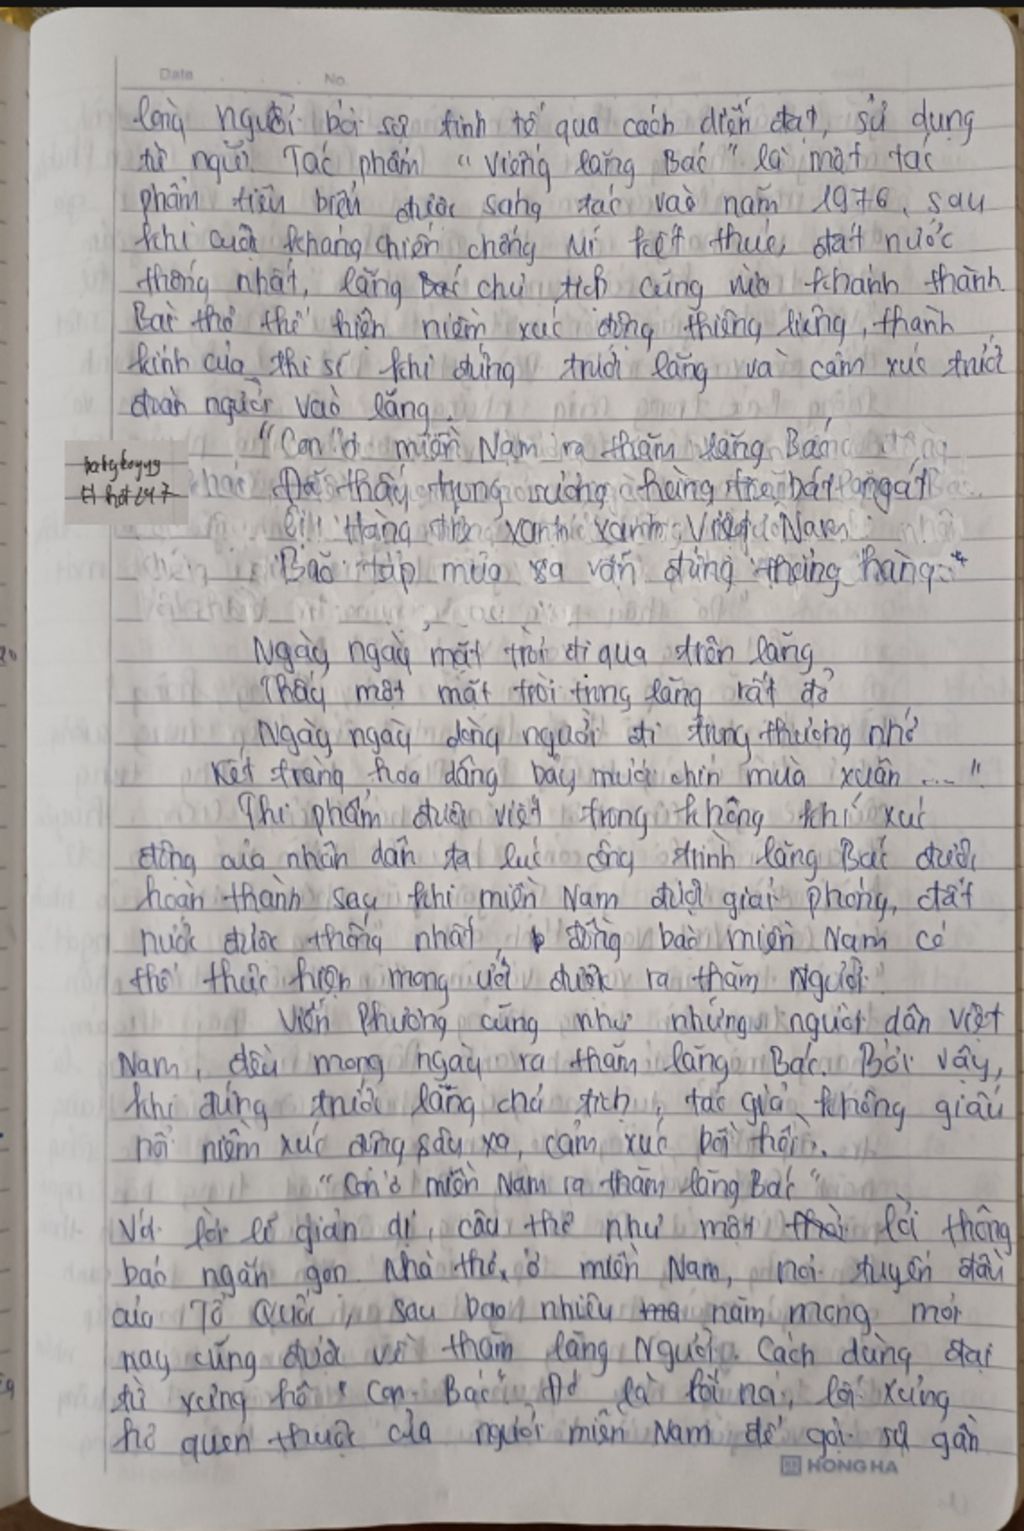 Date No.
lòng người bởi sự tinh tế qua cách diễn đạt, sử dụng
từ ngữ. Tác phẩm "Viếng lăng Bác" là một tác
phẩm tiêu biểu được sáng tác vào năm 1976, sau
khi cuộc kháng chiến chống Mĩ kết thúc, đất nước
thống nhất, lăng Bác chủ tịch cũng vừa khánh thành.
Bài thơ thể hiện niềm xúc động thiêng liêng, thành
kính của thi sĩ khi đứng trước lăng và cảm xúc trước
đoàn người vào lăng.
"Con ở miền Nam ra thăm lăng Bác
Đã thấy trong sương hàng tre bát ngát
Ôi! Hàng tre xanh xanh Việt Nam
Bão táp mưa sa vẫn đứng thẳng hàng.
Ngày ngày mặt trời đi qua trên lăng
Thấy một mặt trời trong lăng rất đỏ
Ngày ngày dòng người đi trong thương nhớ
Kết tràng hoa dâng bảy mươi chín mùa xuân ... "
Thi phẩm được viết trong không khí xúc
động của nhân dân ta lúc công trình lăng Bác được
hoàn thành sau khi miền Nam được giải phóng, đất
nước được thống nhất, đồng bào miền Nam có
thể thực hiện mong ước được ra thăm Người.
Viễn Phương cũng như những người dân Việt
Nam, đều mong ngày ra thăm lăng Bác. Bởi vậy,
khi đứng trước lăng chủ tịch, tác giả không giấu
nổi niềm xúc động sâu xa, cảm xúc bồi hồi.
"Con ở miền Nam ra thăm lăng Bác"
Với lời lẽ giản dị, câu thơ như một lời thông
báo ngắn gọn. Nhà thơ ở miền Nam, nơi tuyến đầu
của Tổ Quốc, sau bao nhiêu năm mong mỏi
nay cũng được về thăm lăng Người. Cách dùng đại
từ xưng hô "Con - Bác". Đó là lối nói, lối xưng
hô quen thuộc của người miền Nam để gợi sự gần
HONG HA